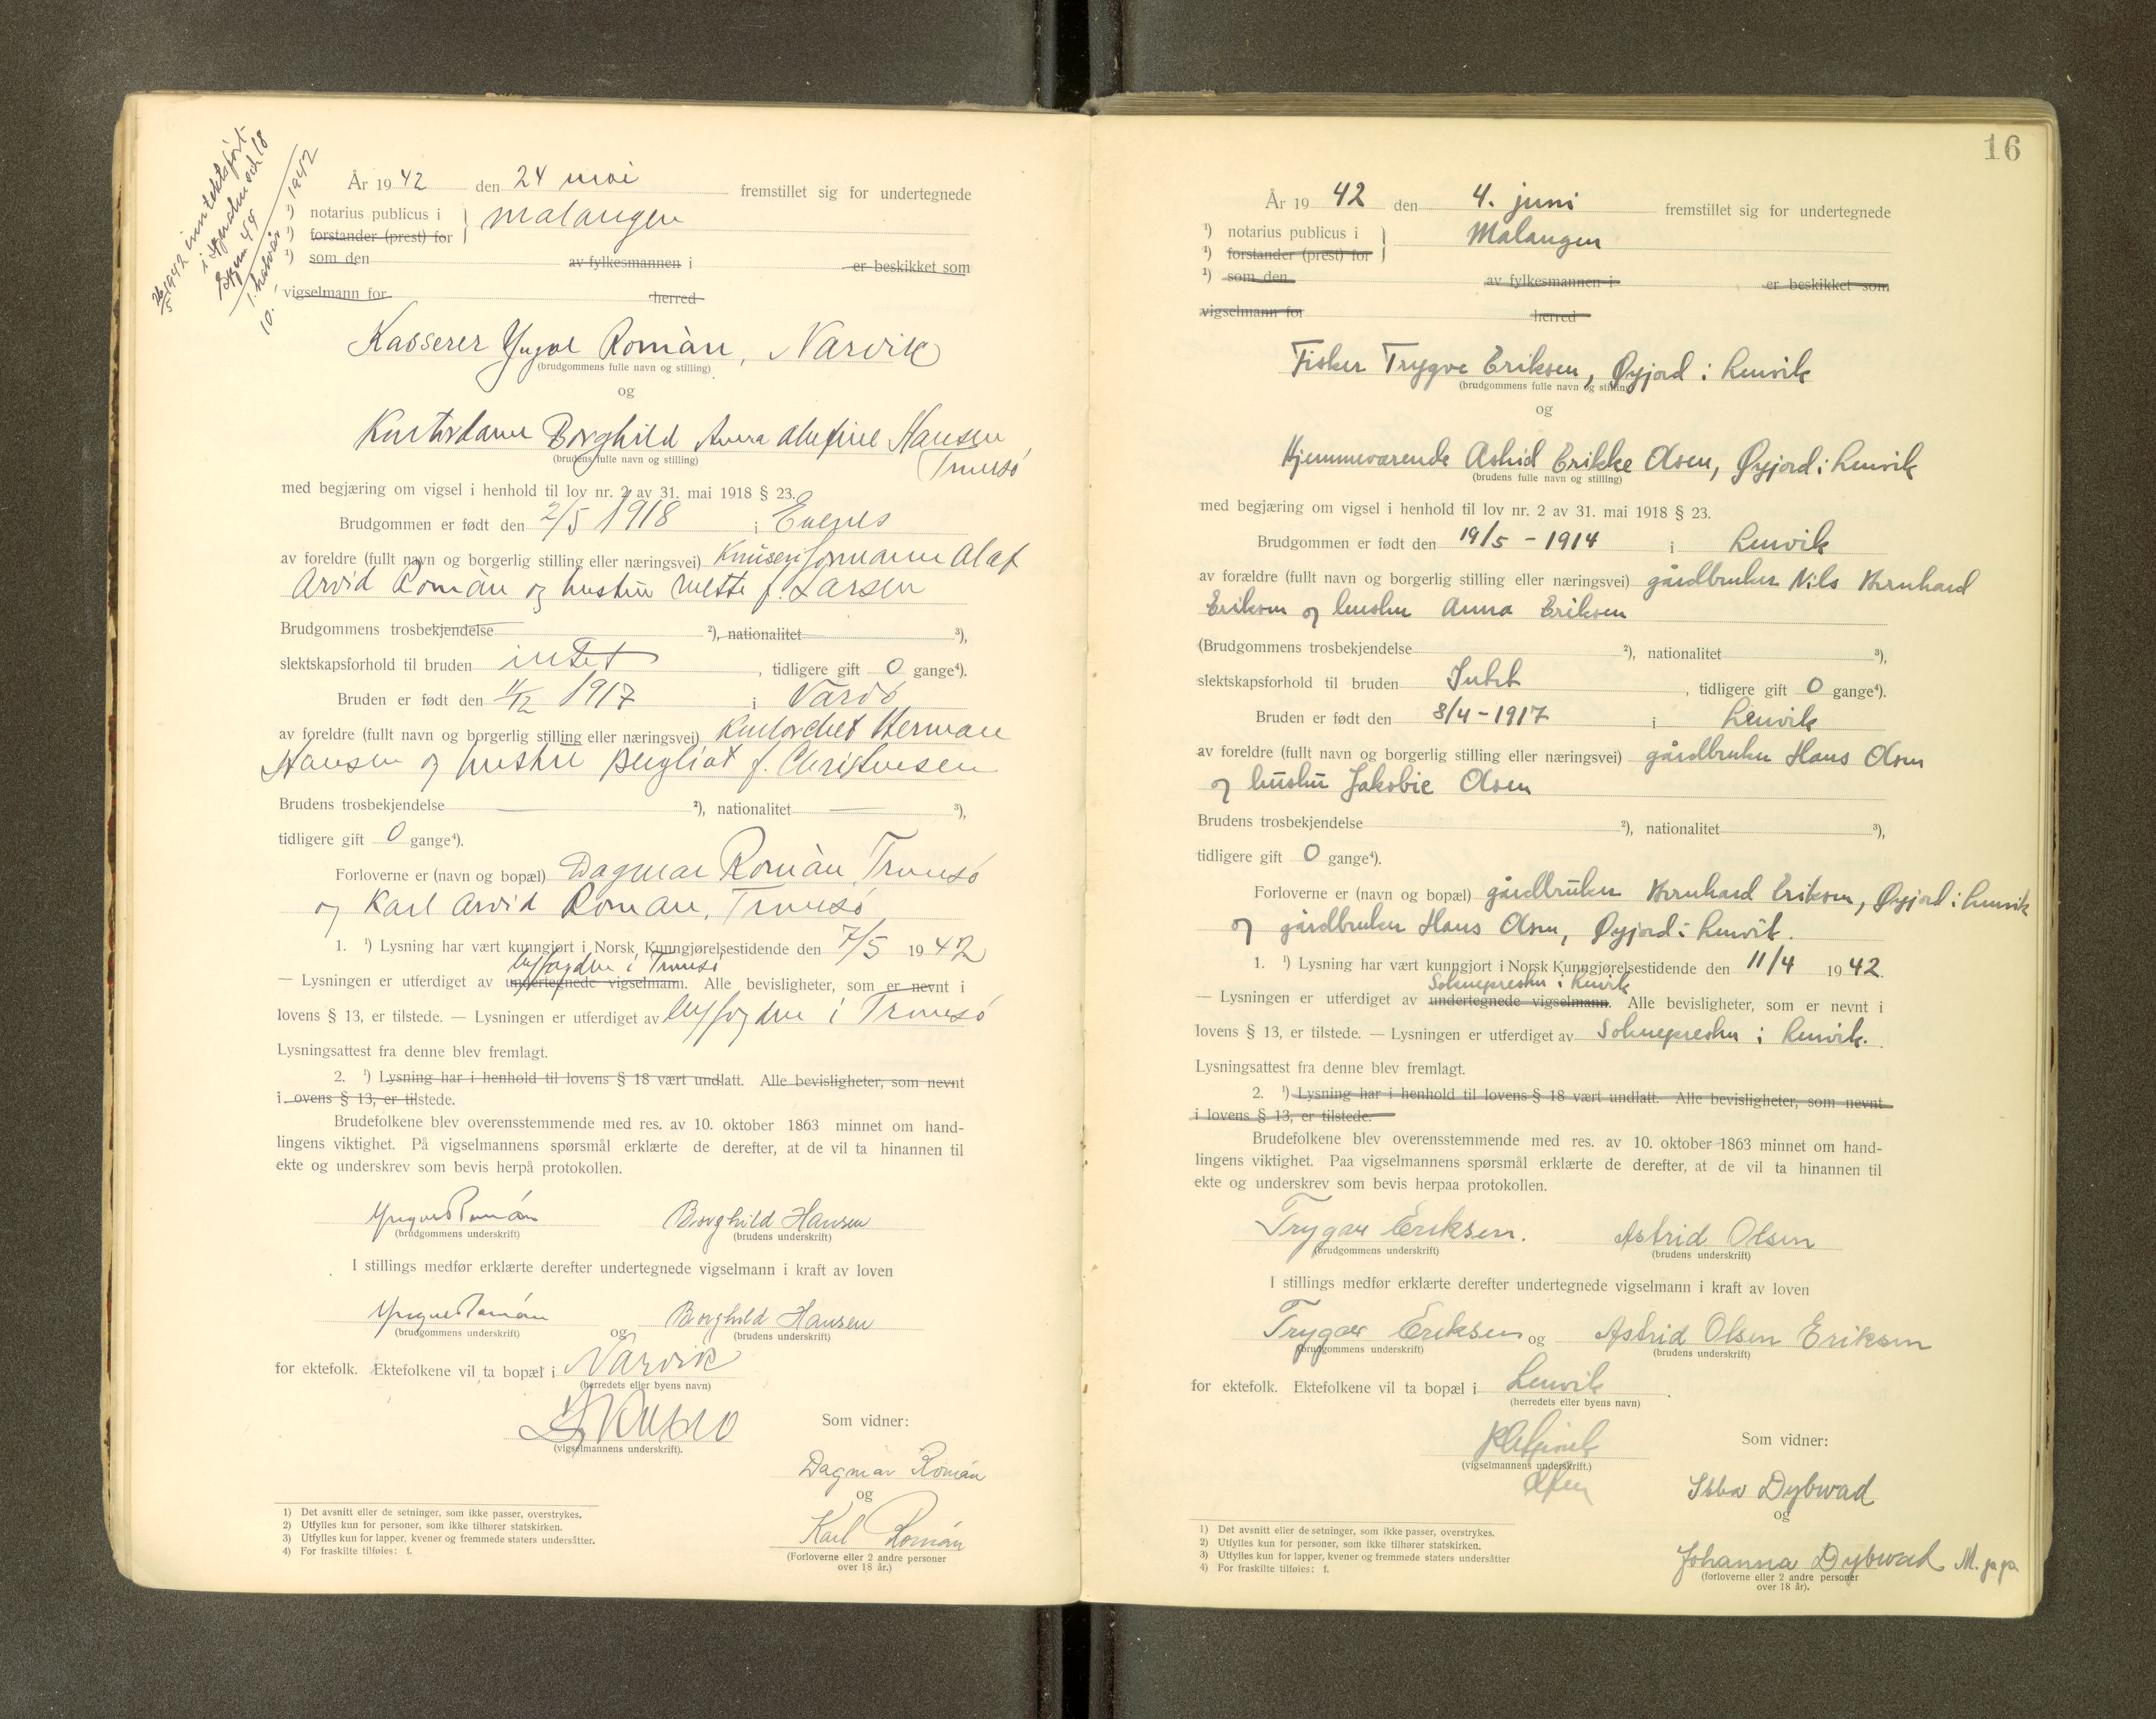 År 1942 den 24 mai fremstillet sig for undertegnede
¹) notarius publicus i } Malangen
¹) forstander (prest) for
¹) som den av fylkesmannen i er beskikket som
vigselmann for herred
Kasserer Yngve Romàn, Narvik
(brudgommens fulle navn og stilling)
og
Kontordame Borghild Anna Hansen
(brudens fulle navn og stilling) Tromsø
med begjæring om vigsel i henhold til lov nr. 2 av 31. mai 1918 § 23.
Brudgommen er født den 2/5 1918 i Evenes
av foreldre (fullt navn og borgerlig stilling eller næringsvei) Olaf
Arvid Romàn og hustru Mette f. Larsen
Brudgommens trosbekjendelse ²), nationalitet ³),
slektskapsforhold til bruden intet, tidligere gift 0 gange⁴).
Bruden er født den 1/12 1917 i Vardø
av foreldre (fullt navn og borgerlig stilling eller næringsvei) Herman
Hansen og hustru Bergliot f. Christensen
Brudens trosbekjendelse ²), nationalitet ³),
tidligere gift 0 gange⁴).
Forloverne er (navn og bopæl) Dagmar Romàn, Tromsø
og Karl Arvid Romàn, Tromsø
1. ¹) Lysning har vært kunngjort i Norsk Kunngjørelsestidende den 7/5 1942
byfogden i Tromsø
— Lysningen er utferdiget av undertegnede vigselmann. Alle bevisligheter, som er nevnt i
lovens § 13, er tilstede. — Lysningen er utferdiget av byfogden i Tromsø
Lysningsattest fra denne blev fremlagt.
2. ¹) Lysning har i henhold til lovens § 18 vært undlatt. Alle bevisligheter, som nevnt
i lovens § 13, er tilstede.
Brudefolkene blev overensstemmende med res. av 10. oktober 1863 minnet om hand-
lingens viktighet. På vigselmannens spørsmål erklærte de derefter, at de vil ta hinannen til
ekte og underskrev som bevis herpå protokollen.
Yngve Romàn Borghild Hansen
(brudgommens underskrift) (brudens underskrift)
I stillings medfør erklærte derefter undertegnede vigselmann i kraft av loven
Yngve Romàn og Borghild Hansen
(brudgommens underskrift) (brudens underskrift)
for ektefolk. Ektefolkene vil ta bopæl i Narvik
(herredets eller byens navn)
Som vidner:
(vigselmannens underskrift).
Dagmar Romàn
og
Karl Romàn
(Forloverne eller 2 andre personer
over 18 år.)
1) Det avsnitt eller de setninger, som ikke passer, overstrykes.
2) Utfylles kun for personer, som ikke tilhører statskirken.
3) Utfylles kun for lapper, kvener og fremmede staters undersåtter.
4) For fraskilte tilføies: f.
16
År 1942 den 4. juni fremstillet sig for undertegnede
¹) notarius publicus i } Malangen
¹) forstander (prest) for
¹) som den av fylkesmannen i er beskikket som
vigselmann for herred
Fisker Trygve Eriksen, Øyjord i Lenvik
(brudgommens fulle navn og stilling)
og
Hjemmeværende Astrid Erikke Olsen, Øyjord i Lenvik
(brudens fulle navn og stilling)
med begjæring om vigsel i henhold til lov nr. 2 av 31. mai 1918 § 23.
Brudgommen er født den 19/5 - 1914 i Lenvik
av forældre (fullt navn og borgerlig stilling eller næringsvei) gårdbruker Nils Bernhard
Eriksen og hustru Anna Eriksen
(Brudgommens trosbekjendelse ²), nationalitet ³),
slektskapsforhold til bruden Intet, tidligere gift 0 gange⁴).
Bruden er født den 8/4 - 1917 i Lenvik
av foreldre (fullt navn og borgerlig stilling eller næringsvei) gårdbruker Hans Olsen
og hustru Jakobie Olsen
Brudens trosbekjendelse ²), nationalitet ³),
tidligere gift 0 gange⁴).
Forloverne er (navn og bopæl) gårdbruker Bernhard Eriksen, Øyjord i Lenvik
og gårdbruker Hans Olsen, Øyjord i Lenvik.
1. ¹) Lysning har vært kunngjort i Norsk Kunngjørelsestidende den 11/4 1942.
Sokneprestn i Lenvik
— Lysningen er utferdiget av undertegnede vigselmann. Alle bevisligheter, som er nevnt i
lovens § 13, er tilstede. — Lysningen er utferdiget av Sokneprestn i Lenvik.
Lysningsattest fra denne blev fremlagt.
2. ¹) Lysning har i henhold til lovens § 18 vært undlatt. Alle bevisligheter, som nevnt
i lovens § 13, er tilstede.
Brudefolkene blev overensstemmende med res. av 10. oktober 1863 minnet om hand-
lingens viktighet. Paa vigselmannens spørsmål erklærte de derefter, at de vil ta hinannen til
ekte og underskrev som bevis herpaa protokollen.
Trygve Eriksen. Astrid Olsen
(brudgommens underskrift) (brudens underskrift)
I stillings medfør erklærte derefter undertegnede vigselmann i kraft av loven
Trygve Eriksen og Astrid Olsen Eriksen
(brudgommens underskrift) (brudens underskrift)
for ektefolk. Ektefolkene vil ta bopæl i Lenvik.
(herredets eller byens navn)
Som vidner:
(vigselmannens underskrift.)
Ebba Dybwad
og
Johanna Dybwad
(forloverne eller 2 andre personer
over 18 år).
1) Det avsnitt eller de setninger, som ikke passer, overstrykes.
2) Utfylles kun for personer, som ikke tilhører statskirken.
3) Utfylles kun for lapper, kvener og fremmede staters undersåtter
4) For fraskilte tilføies: f.